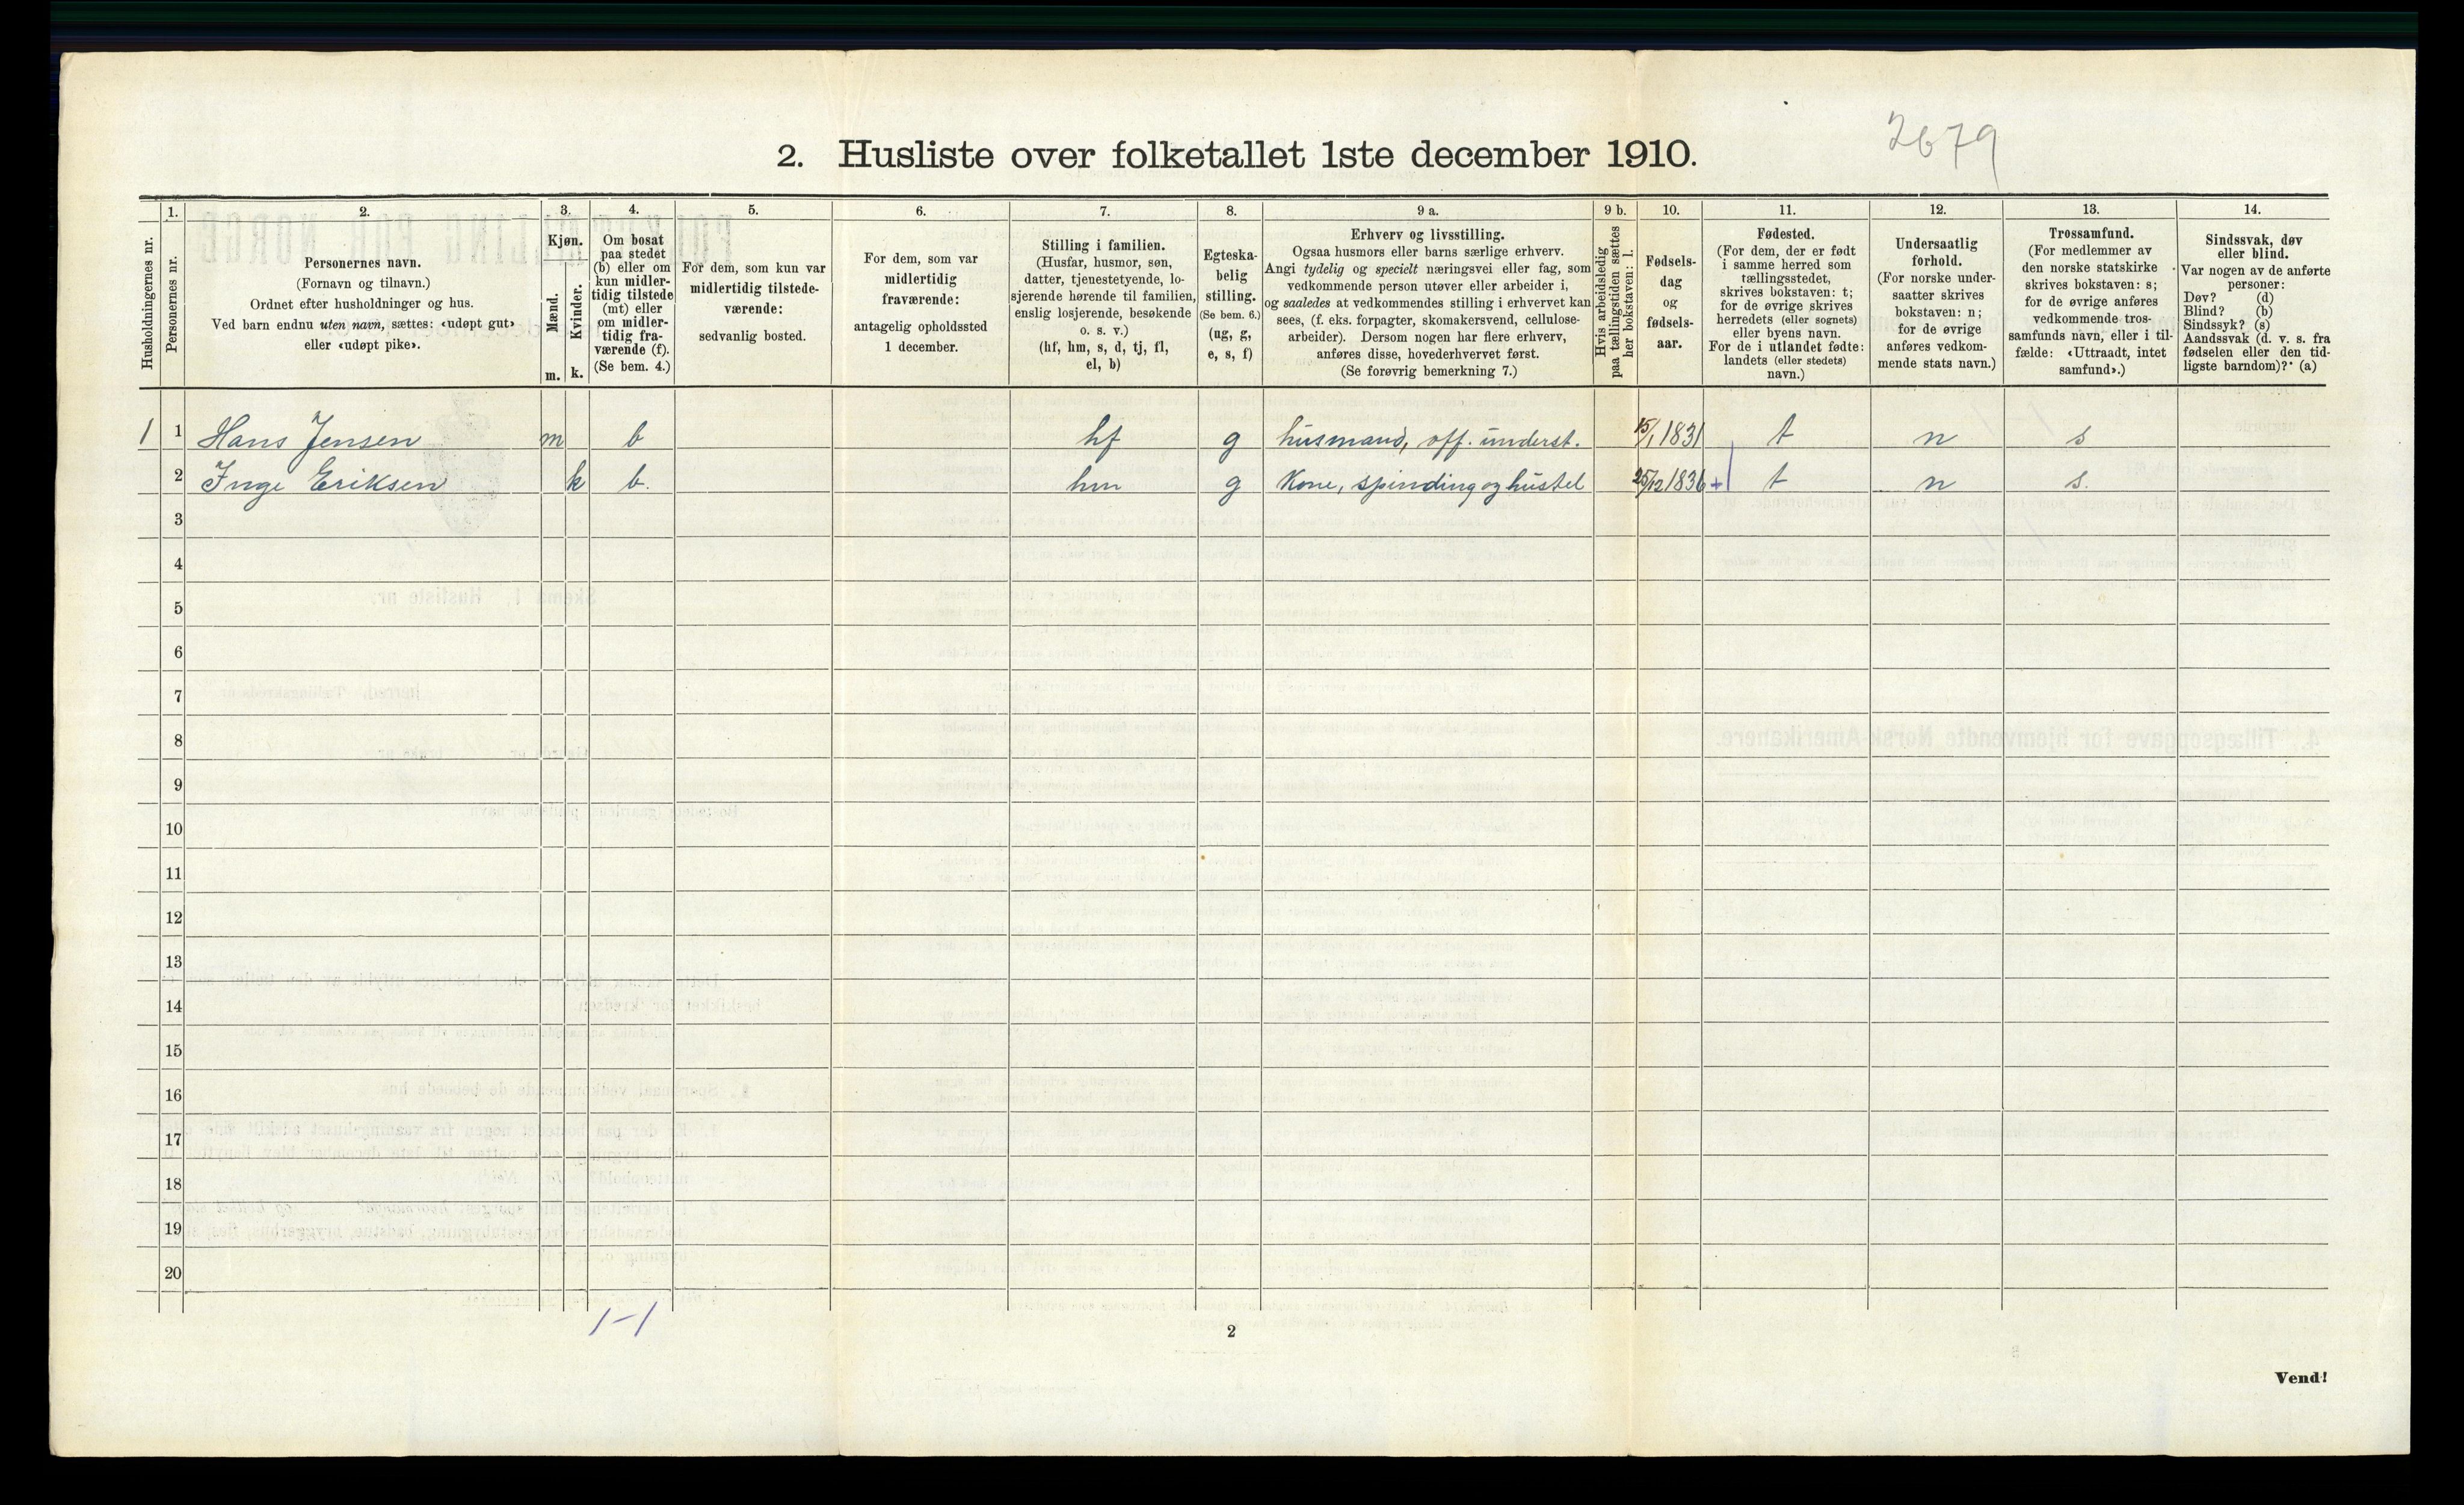 2679
2. Husliste over folketallet 1ste december 1910.
Husholdningernes nr.
1.
Personernes nr.
2.
Personernes navn.
(Fornavn og tilnavn.)
Ordnet efter husholdninger og hus.
Ved barn endnu uten navn, sættes: «udøpt gut»
eller «udøpt pike».
3.
Kjøn.
Mænd.
Kvinder.
m. k.
4.
Om bosat
paa stedet
(b) eller om
kun midler-
tidig tilstede
(mt) eller
om midler-
tidig fra-
værende (f).
(Se bem. 4.)
5.
For dem, som kun var
midlertidig tilstede-
værende:
sedvanlig bosted.
6.
For dem, som var
midlertidig
fraværende:
antagelig opholdssted
1 december.
7.
Stilling i familien.
(Husfar, husmor, søn,
datter, tjenestetyende, lo-
sjerende hørende til familien,
enslig losjerende, besøkende
o. s. v.)
(hf, hm, s, d, tj, fl,
el, b)
8.
Egteska-
belig
stilling.
(Se bem. 6.)
(ug, g,
e, s, f)
9 a.
Erhverv og livsstilling.
Ogsaa husmors eller barns særlige erhverv.
Angi tydelig og specielt næringsvei eller fag, som
vedkommende person utøver eller arbeider i,
og saaledes at vedkommendes stilling i erhvervet kan
sees, (f. eks. forpagter, skomakersvend, cellulose-
arbeider). Dersom nogen har flere erhverv,
anføres disse, hovederhvervet først.
(Se forøvrig bemerkning 7.)
9 b.
Hvis arbeidsledig
paa tællingstiden sættes
her bokstaven: l.
10.
Fødsels-
dag
og
fødsels-
aar.
11.
Fødested.
(For dem, der er født
i samme herred som
tællingsstedet,
skrives bokstaven: t;
for de øvrige skrives
herredets (eller sognets)
eller byens navn.
For de i utlandet fødte:
landets (eller stedets)
navn.)
12.
Undersaatlig
forhold.
(For norske under-
saatter skrives
bokstaven: n;
for de øvrige
anføres vedkom-
mende stats navn.)
13.
Trossamfund.
(For medlemmer av
den norske statskirke
skrives bokstaven: s;
for de øvrige anføres
vedkommende tros-
samfunds navn, eller i til-
fælde: «Uttraadt, intet
samfund».)
14.
Sindssvak, døv
eller blind.
Var nogen av de anførte
personer:
Døv? (d)
Blind? (b)
Sindssyk? (s)
Aandssvak (d. v. s. fra
fødselen eller den tid-
ligste barndom)? (a)
1 1 Hans Jensen m b hf g husmand, off. underst. 15/1 1831 t n s
2 Inge Eriksen k b. hm g Kone, spinding og hustel 25/12 1836 +| t n s.
3
4
5
6
7
8
9
10
11
12
13
14
15
16
17
18
19
20
1-1
2
Vend!